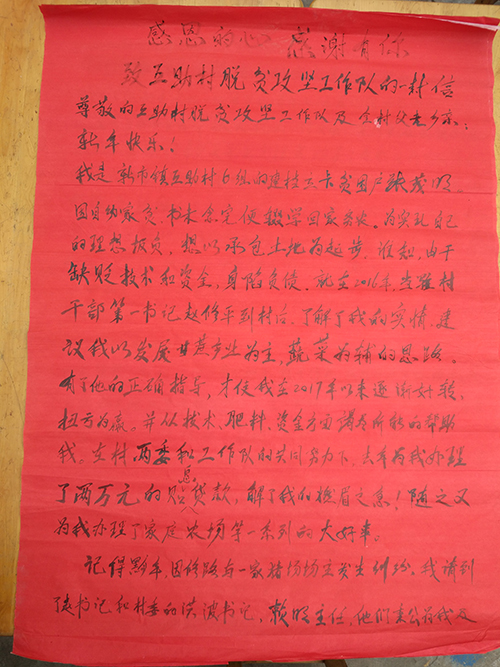 感恩的心 感谢有你
致互助村脱贫攻坚工作队的一封信
尊敬的互助村脱贫攻坚工作队及全村父老乡亲:
新年快乐!
我是新市镇互助村6组的建档立卡贫困户张茂明。
因自幼家贫,书未念完便辍学回家务农。为实现自己
的理想抱负,想以承包土地为起步,谁知,由于
缺贬技术和资金,身陷负债。就在2016年,驻村
干部第一书记赵修平到村后,了解了我的实情,建
议我以发展甘蔗产业为主,蔬菜为辅的思路。
有了他的正确指导,才使我在2017年以来逐渐好转,
扭亏为赢。并从技术、肥料、资金方面诸为所能的帮助
我。在村两委和工作队的共同努力下,去年为我办理
了两万元的贴息贷款,解了我们燃眉之急!随之又
为我办理了家庭农场等一系列的大好事。
记得黔年,因修路与一家猪场场主发生纠纷,我请到
了赵书记和村委的洪波书记、赖明主任,他们秉公为我及